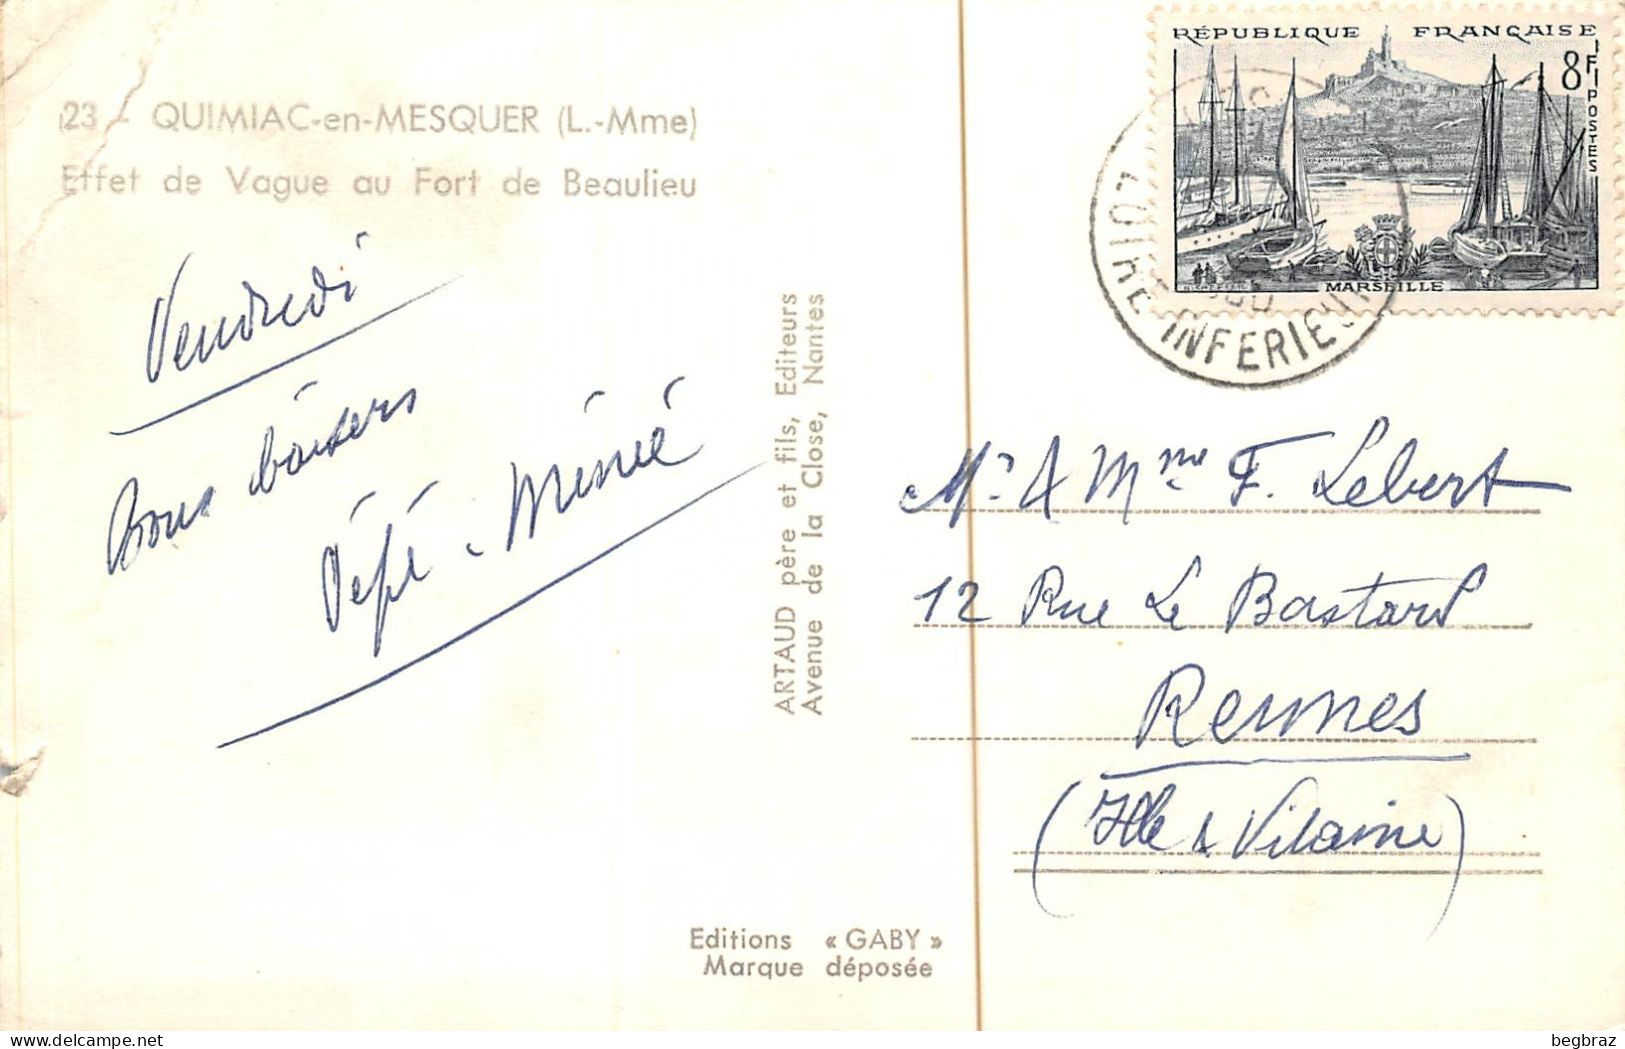 23 - QUIMIAC-en-MESQUER (L.-Mme)
Effet de Vague au Fort de Beaulieu
Vendredi
Bons baisers
Pépé - Mémé
ARTAUD père et fils, Editeurs
Avenue de la Close, Nantes
Editions « GABY »
Marque déposée
RÉPUBLIQUE FRANÇAISE
8F
POSTES
MARSEILLE
LOIRE INFERIEURE
Mr & Mme F. Lebert
12 Rue Le Bastard
Rennes
(Ille & Vilaine)
begbraz